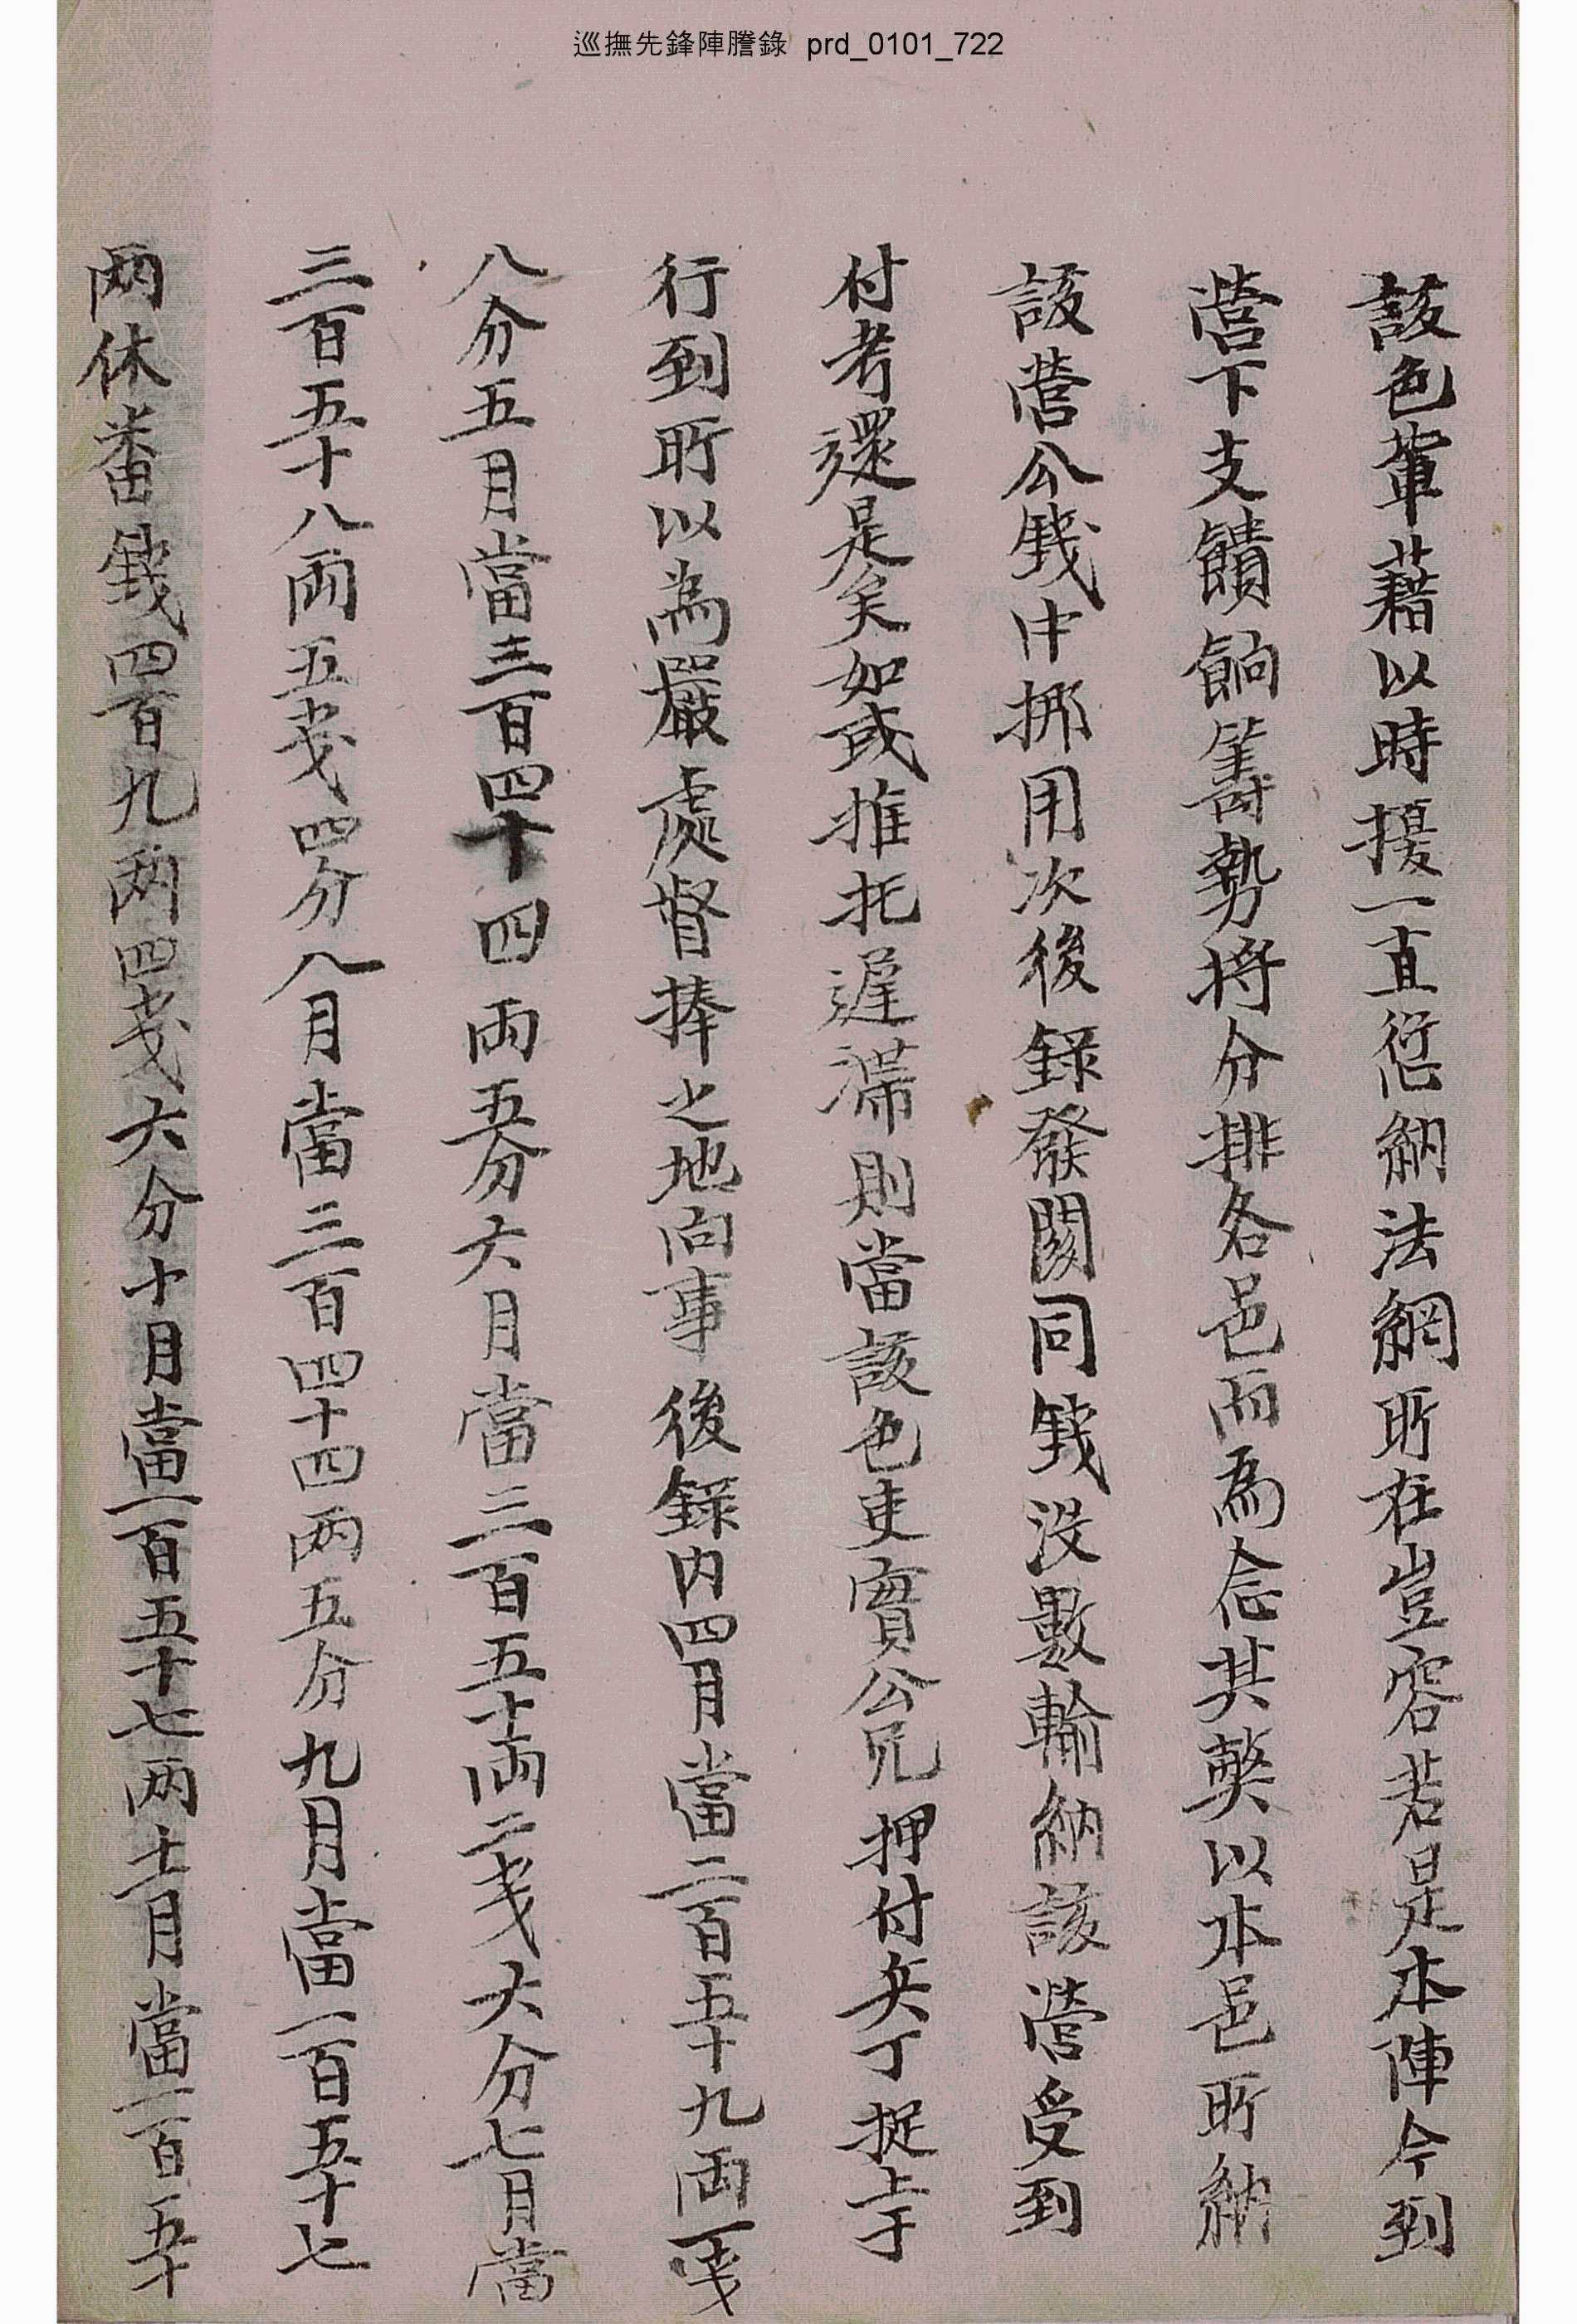 巡撫先鋒陣謄錄 prd_0101_722
該色軰藉以時擾一直愆納法網所在豈容若是本陣今到
營下支饋餉籌勢將分排各邑而爲念其獘以本邑所納
該營公錢中挪用次後錄發関同錢沒數輸納該營受到
付考還是矣如或推托遲滯則當該色吏實公兄押付兵丁捉上于
行到所以為嚴處督捧之地向事後錄內四月當二百五十九兩一戔
八分五月當三百四十四兩五分六月當三百五十兩二戔六分七月當
三百五十八兩五戔四分八月當三百四十四两五分九月當一百五十七
两休番錢四百九两四戔六分十月當一百五十七两十一月當一百五十